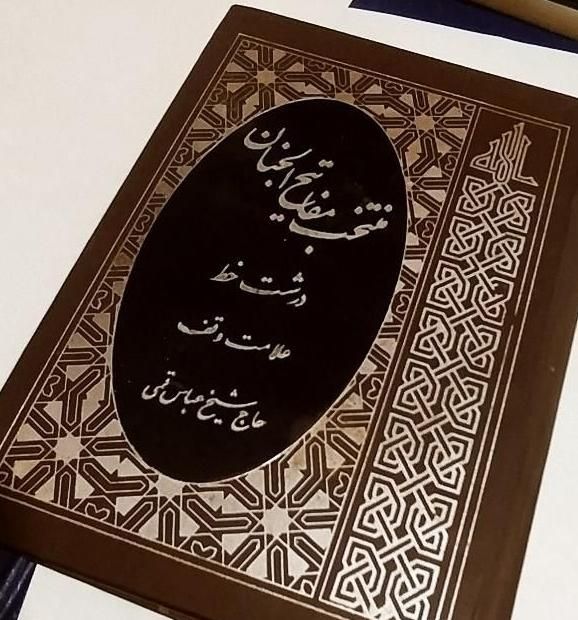 منتخب مفاتیح الجنان
درشت خط
علامت وقف
حاج شیخ عباس قمی